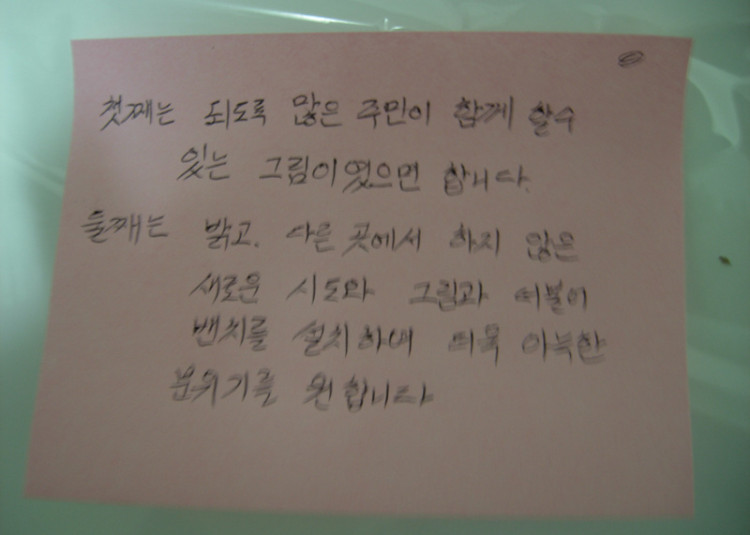 첫째는 되도록 많은 주민이 함께 할수
있는 그림이였으면 합니다.
둘째는 밝고. 다른 곳에서 하지 않은
새로운 시도와 그림과 더불어
밴치를 설치하여 더욱 아늑한
분위기를 원합니다